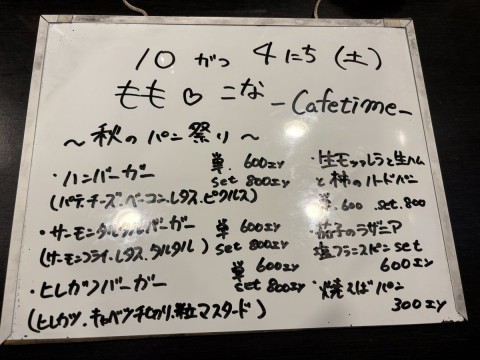 10がつ4にち(土)
もも♡こな -Cafetime-
~秋のパン祭り~
・ハンバーガー 単.600エy
set 800エy
(パテ.チーズ.ベーコン.レタス.ピクルス)
・サーモンタルタルバーガー 単 600エy
set 800エy
(サーモンフライ.レタス.タルタル)
・ヒレカツバーガー 単 600エy
set 800エy
(ヒレカツ.キャベツ千切り.粒マスタード)
・生モッツァレラと生ハム
と柿のハードパン
単.600 .set.800
・茄子のラザニア
塩フランスパン set
600エy
・焼そばパン
300エy